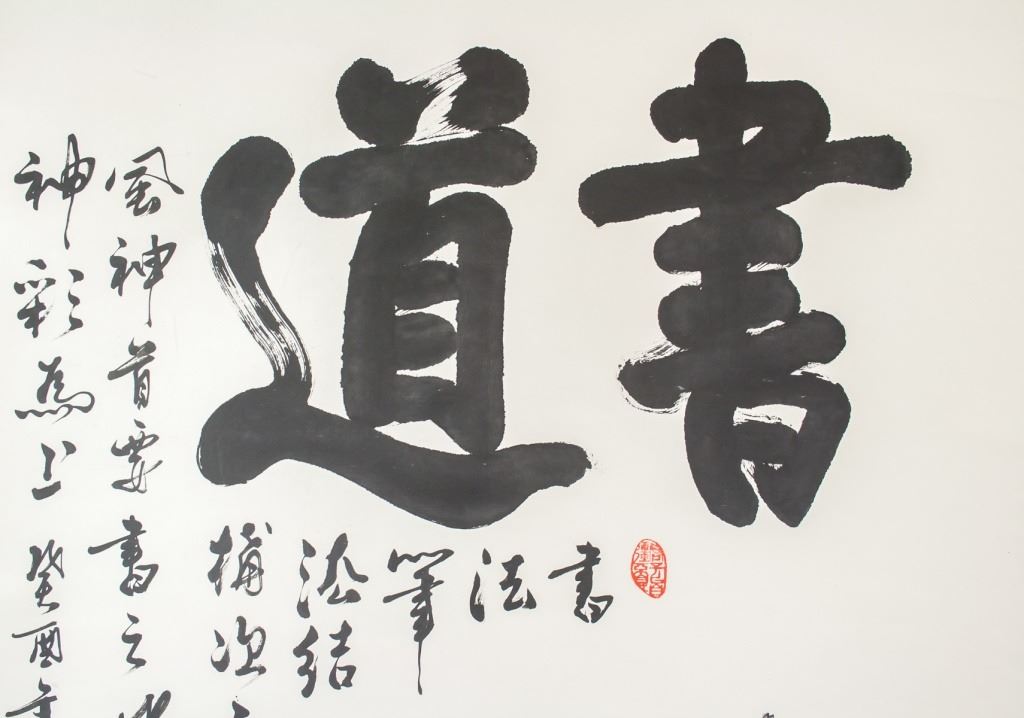 書道
書
法
筆
法結
構次
風神首要書之
神彩為上 癸酉年